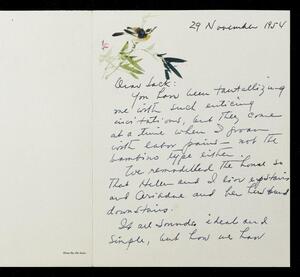 29 November 1954
Dear Jack:
You have been tantallizing
me with such enticing
invitations, and they come
at a time when I groan
with labor pains – not the
bambino type either.
We remodelled the house so
that Helen and I live upstairs
and Ariadne and her husband
downstairs.
It all sounds ideal and
simple, but how we have